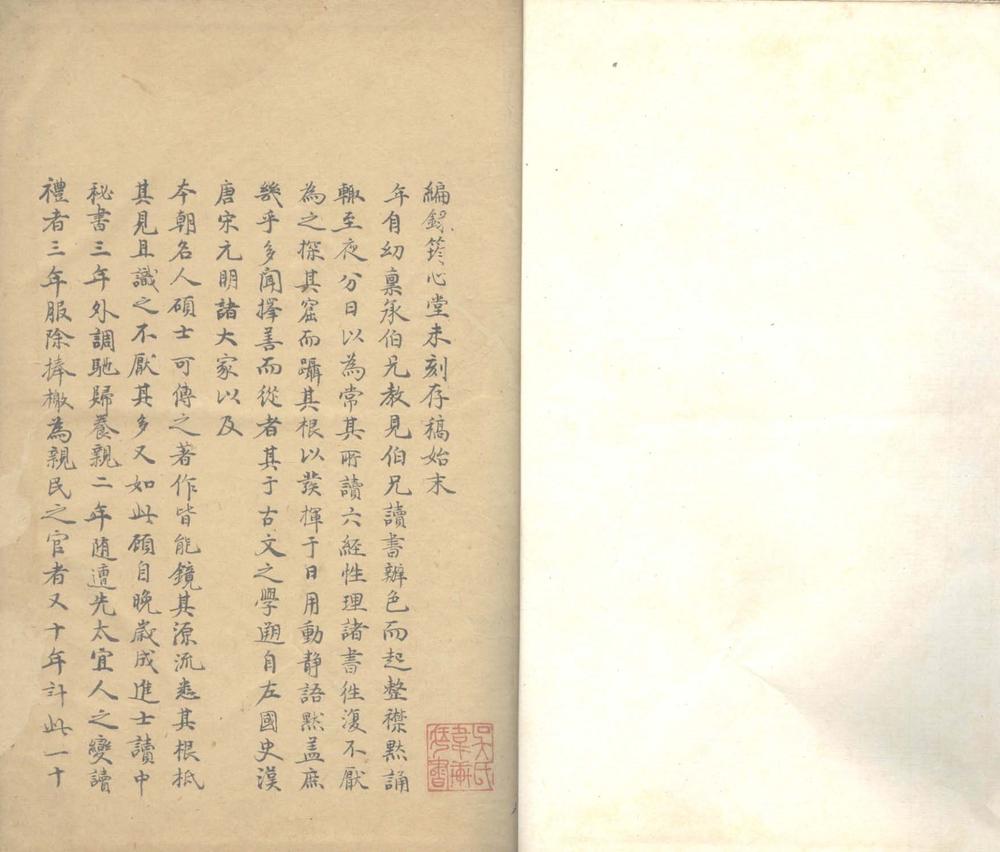 編錄簳心堂未刻存稿始末
年自幼稟承伯兄教見伯兄讀書辨色而起整襟默誦
輙至夜分日以為常其所讀六經性理諸書徃復不厭
為之探其窟而躡其根以發揮于日用動静語默盖庶
幾乎多聞擇善而從者其于古文之學遡自左國史漢
唐宋元明諸大家以及
本朝名人碩士可傳之著作皆能鏡其源流悉其根柢
其見且識之不厭其多又如此顧自晚歲成進士讀中
秘書三年外調馳歸養親二年随遭先太宜人之變讀
禮者三年服除捧檄為親民之官者又十年計此一十
吳氏